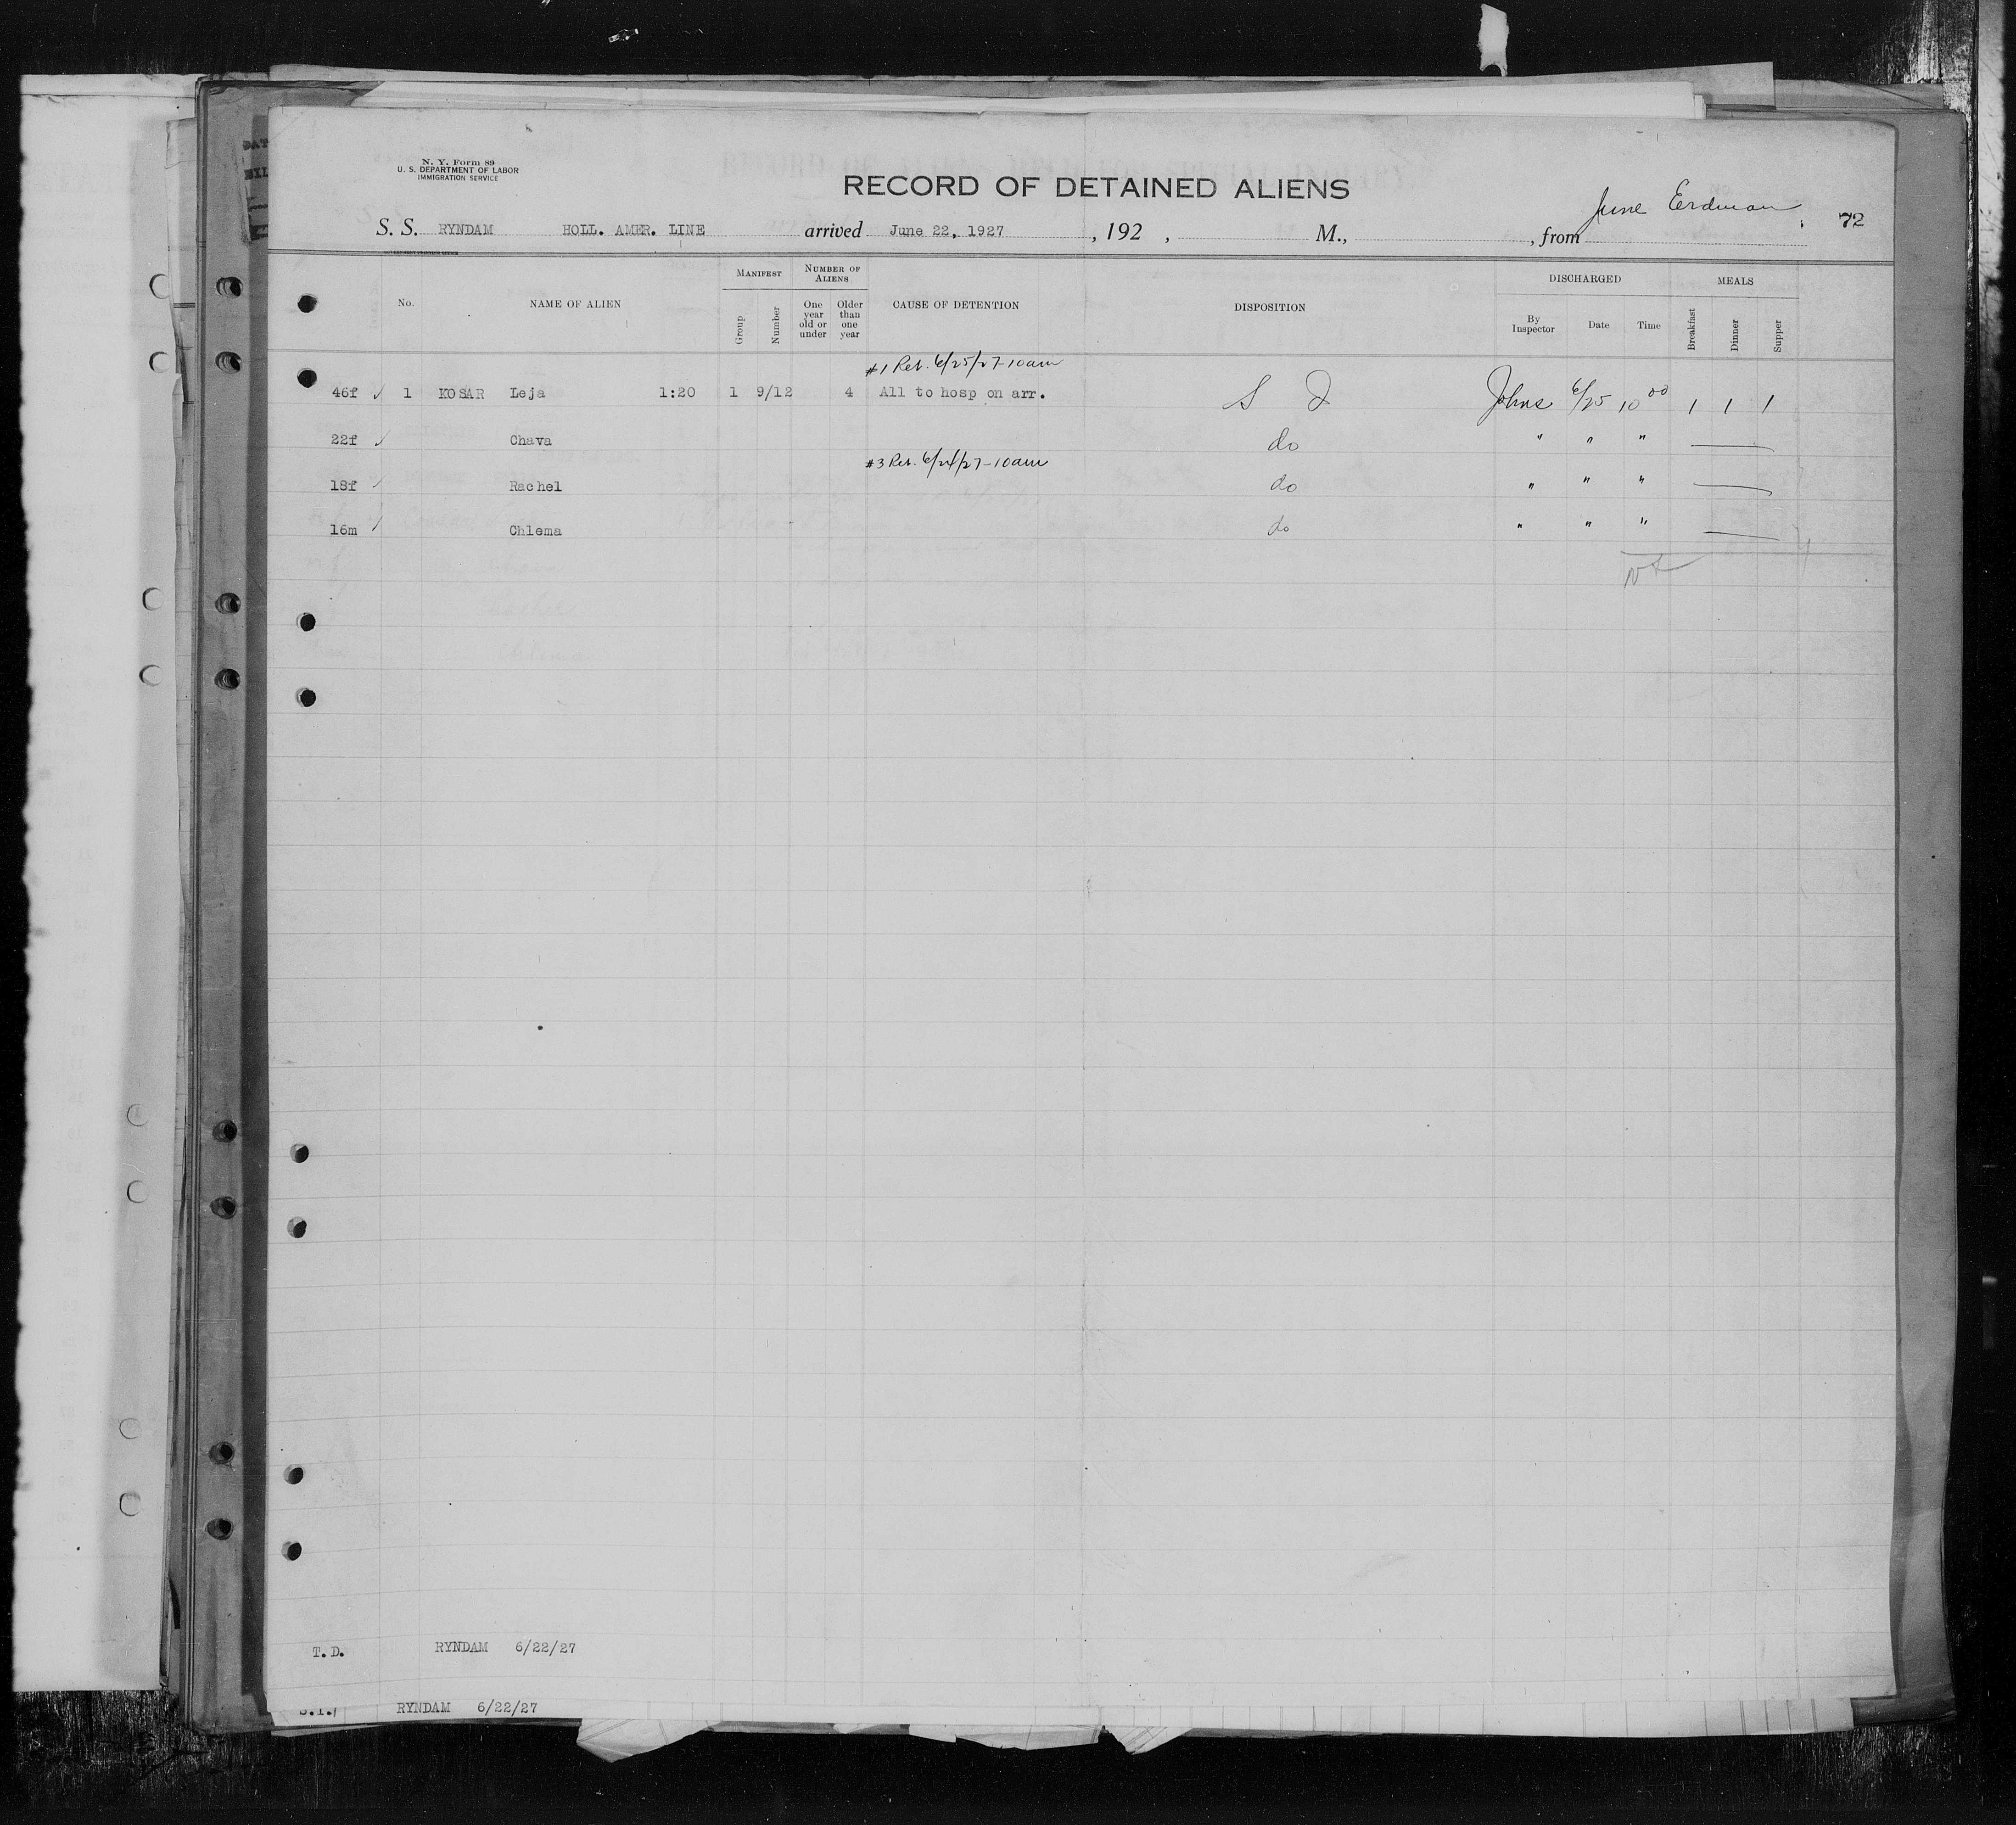 N. Y. Form 89
U. S. DEPARTMENT OF LABOR
IMMIGRATION SERVICE
RECORD OF DETAINED ALIENS
June Erdman
72
S. S. RYNDAM HOLL. AMER. LINE arrived June 22, 1927, 192 , M., , from
No. NAME OF ALIEN MANIFEST Group Number NUMBER OF ALIENS One year old or under Older than one year CAUSE OF DETENTION DISPOSITION DISCHARGED By Inspector Date Time MEALS Breakfast Dinner Supper
#1 Ret. 6/25/27-10am
46f ✓ 1 KOSAR Leja 1:20 1 9/12 4 All to hosp on arr. S I Johns 6/25 10 00 1 1 1
22f ✓ Chava do " " "
#3 Ret. 6/24/27-10am
18f ✓ Rachel do " " "
16m ✓ Chlema do " " "
4
T.D. RYNDAM 6/22/27
S.I. RYNDAM 6/22/27